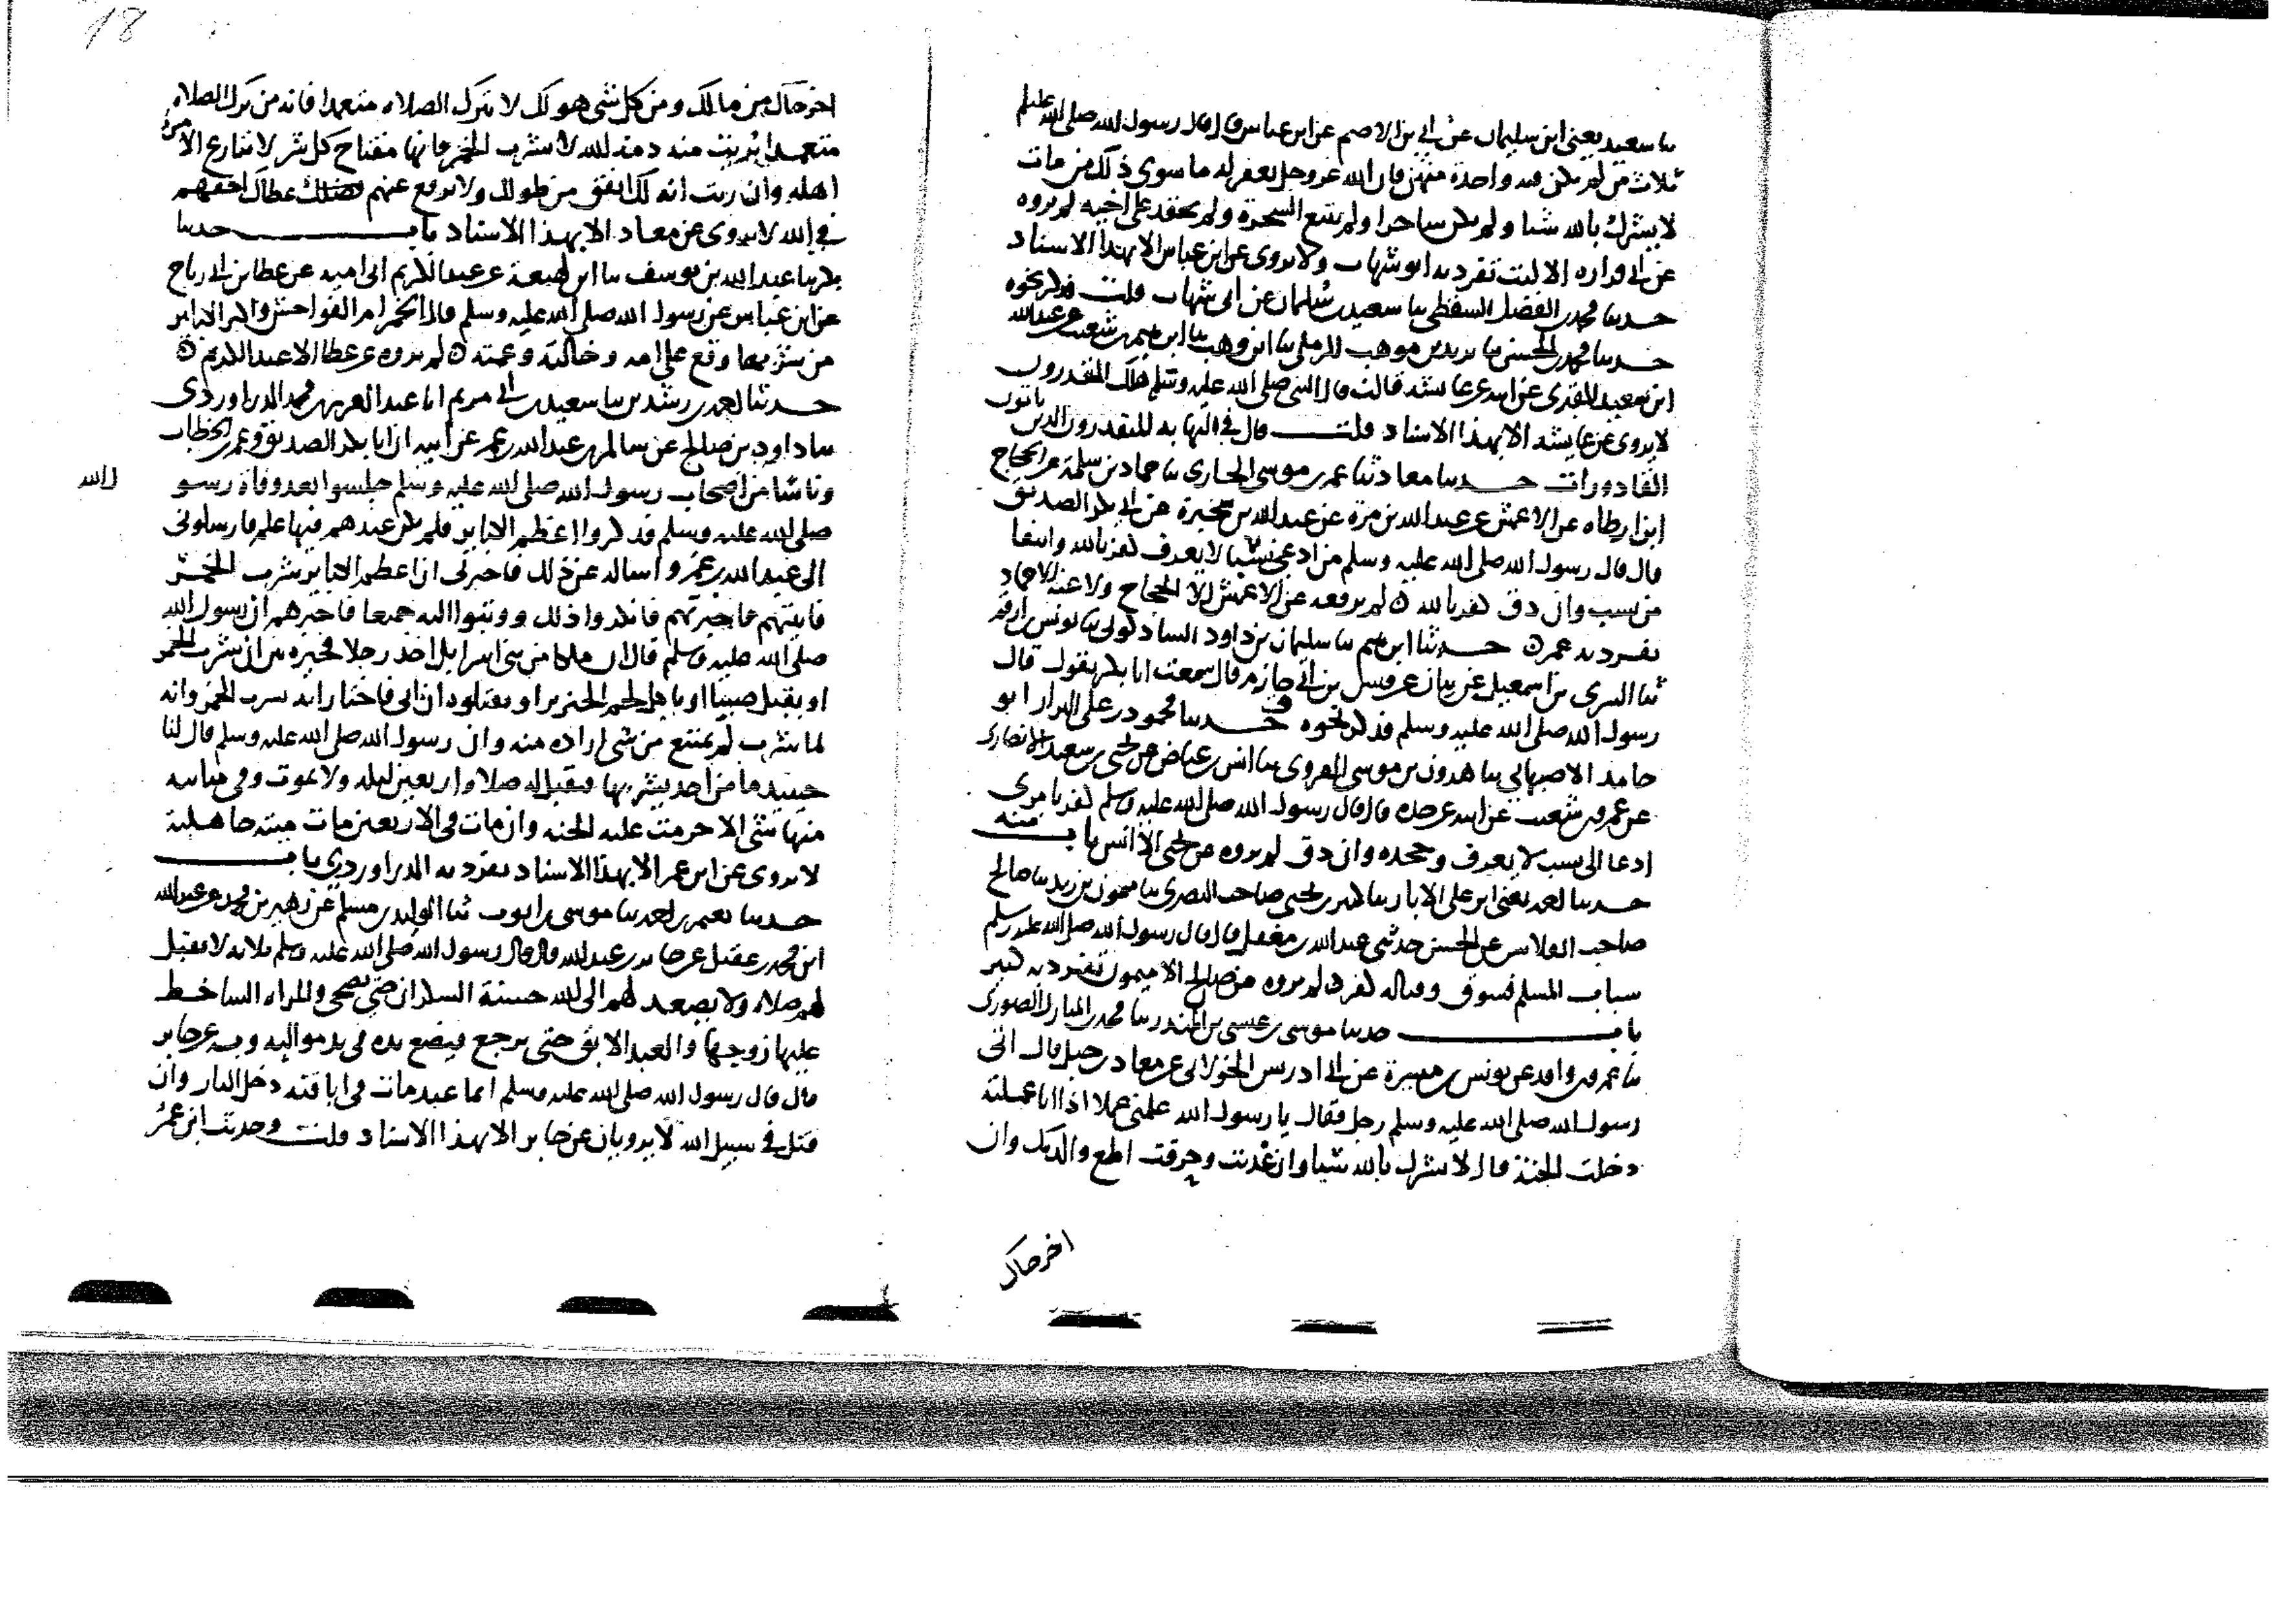 ثنا سعيد يعني ابن سليمان عن يزيد بن الاصم عن ابن عباس قال قال رسول الله صلى الله عليه
ثلاث من لم يكن فيه واحدة منهن فان الله عز وجل يغفر له ما سوى ذلك من مات
لا يشرك بالله شيا ولم يكن ساحرا ولم يتبع السحرة ولم يحقد على اخيه لم يروه
عن ابي فزاره الا ليث تفرد به ابو شهاب ولا يروى عن ابن عباس الا بهذا الاسناد
حدثنا محمد بن الفضل السقطي ثنا سعيد بن سليمان عن ابي شهاب قلت فذكر نحوه
حدثنا محمد بن الحسن ثنا يزيد بن موهب الرملي ثنا ابن وهب ثنا ابرهيم بن شعيب عن عبد الله
ابن سعيد المقبري عن ابيه عن عايشه قالت قال النبي صلى الله عليه وسلم هلك المتقذرون
لا يروى عن عايشه الا بهذا الاسناد قلت قال في النهايه المتقذرون الذين ياتون
القاذورات حدثنا معاذ ثنا عمر بن موسى الحادي ثنا حماد بن سلمة عن الحجاج
ابن ارطاه عن الاعمش عن عبد الله بن مرة عن عبد الله بن سخبرة عن ابي بكر الصديق
قال قال رسول الله صلى الله عليه وسلم من ادعى نسبا لا يعرف كفر بالله وانتفا
من نسب وان دق كفر بالله ٥ لم يرفعه عن الاعمش الا الحجاج ولا عنه الا حماد
تفرد به عمر ٥ حدثنا ابرهيم ثنا سليمان بن داود الشاذكوني ثنا يونس بن ارقم
ثنا السري بن اسمعيل عن بيان عن قيس بن ابي حازم قال سمعت ابا بكر يقول قال
رسول الله صلى الله عليه وسلم فذكر نحوه حدثنا محمود بن علي البزار ابو
حامد الاصبهاني ثنا هرون بن موسى الفروي ثنا انس بن عياض عن يحيى بن سعيد الانصاري
عن عمرو بن شعيب عن ابيه عن جده قال قال رسول الله صلى الله عليه وسلم كفر بامري
ادعا الى نسب لا يعرف وجحده وان دق لم يروه عن يحيى الا انس باب منه
حدثنا احمد يعني ابن علي الابار ثنا كثير بن يحيى صاحب البصري ثنا ميمون بن زيد ثنا صالح
صاحب القلاس عن الحسن حدثني عبد الله بن مغفل قال قال رسول الله صلى الله عليه وسلم
سباب المسلم فسوق وقتاله كفر ٥ لم يروه عن صالح الا ميمون تفرد به كثير
باب حدثنا موسى بن عيسى بن المنذر ثنا محمد بن المبارك الصوري
ثنا عمرو بن واقد عن يونس بن ميسرة عن ابي ادريس الخولاني عن معاذ بن جبل قال اتى
رسول الله صلى الله عليه وسلم رجل فقال يا رسول الله علمني عملا اذا انا عملته
دخلت الجنة قال لا تشرك بالله شيا وان عذبت وحرقت اطع والديك وان
اخرجاك
18
اخرجاك من مالك ومن كل شي هو لك لا تترك الصلاه متعمدا فانه من ترك الصلاه
متعمدا بريت منه ذمة الله لا تشرب الخمر فانها مفتاح كل شر لا تنازع الامر
اهله وان رايت انه لك انفق من طولك ولا ترفع عنهم عصاك اخفهم
في الله لا يروى عن معاذ الا بهذا الاسناد باب حدثنا
بكر ثنا عبد الله بن يوسف ثنا ابن لهيعة عن عبد الكريم ابي اميه عن عطا بن ابي رباح
عن ابن عباس عن رسول الله صلى الله عليه وسلم قال الخمر ام الفواحش واكبر الكباير
من شربها وقع على امه وخالته وعمته ٥ لم يروه عن عطا الا عبد الكريم ٥
حدثنا احمد بن رشدين ثنا سعيد بن ابي مريم انا عبد العزيز بن محمد الدراوردي
ثنا داود بن صالح عن سالم بن عبد الله بن عمر عن ابيه ان ابا بكر الصديق وعمر بن الخطاب
وناسا من اصحاب رسول الله صلى الله عليه وسلم جلسوا بعد وفاة رسو ل الله
صلى الله عليه وسلم فذكروا اعظم الكباير فلم يكن عندهم فيها علم فارسلوني
الى عبد الله بن عمرو اساله عن ذلك فاخبرني ان اعظم الكباير شرب الخمر
فاتيتهم فاخبرتهم فانكروا ذلك ووثبوا اليه جميعا فاخبرهم ان رسول الله
صلى الله عليه وسلم قال ان ملكا من بني اسرايل اخذ رجلا فخيره بين ان يشرب الخمر
او يقتل صبيا او ياكل لحم الخنزير او يقتلوه ان ابى فاختار انه يشرب الخمر وانه
لما شرب لم يمتنع من شي ارادوه منه وان رسول الله صلى الله عليه وسلم قال لنا
حينيذ ما من احد يشربها فتقبل له صلاه اربعين ليله ولا يموت وفي مثانته
منها شي الا حرمت عليه الجنه وان مات في الاربعين مات ميتة جاهلية
لا يروى عن ابن عمر الا بهذا الاسناد تفرد به الدراوردي باب
حدثنا محمد ثنا موسى بن ايوب ثنا الوليد بن مسلم عن زهير بن محمد عن عبد الله
ابن محمد بن عقيل عن جابر بن عبد الله قال قال رسول الله صلى الله عليه وسلم ثلاثه لا تقبل
لهم صلاه ولا يصعد لهم الى الله حسنة السكران حتى يصحى والمراه الساخط
عليها زوجها والعبد الابق حتى يرجع فيضع يده في يد مواليه وبه عن جابر
قال قال رسول الله صلى الله عليه وسلم ايما عبد مات في اباقته دخل النار وان
قتل في سبيل الله لا يرويان عن جابر الا بهذا الاسناد قلت وحديث ابن عمر